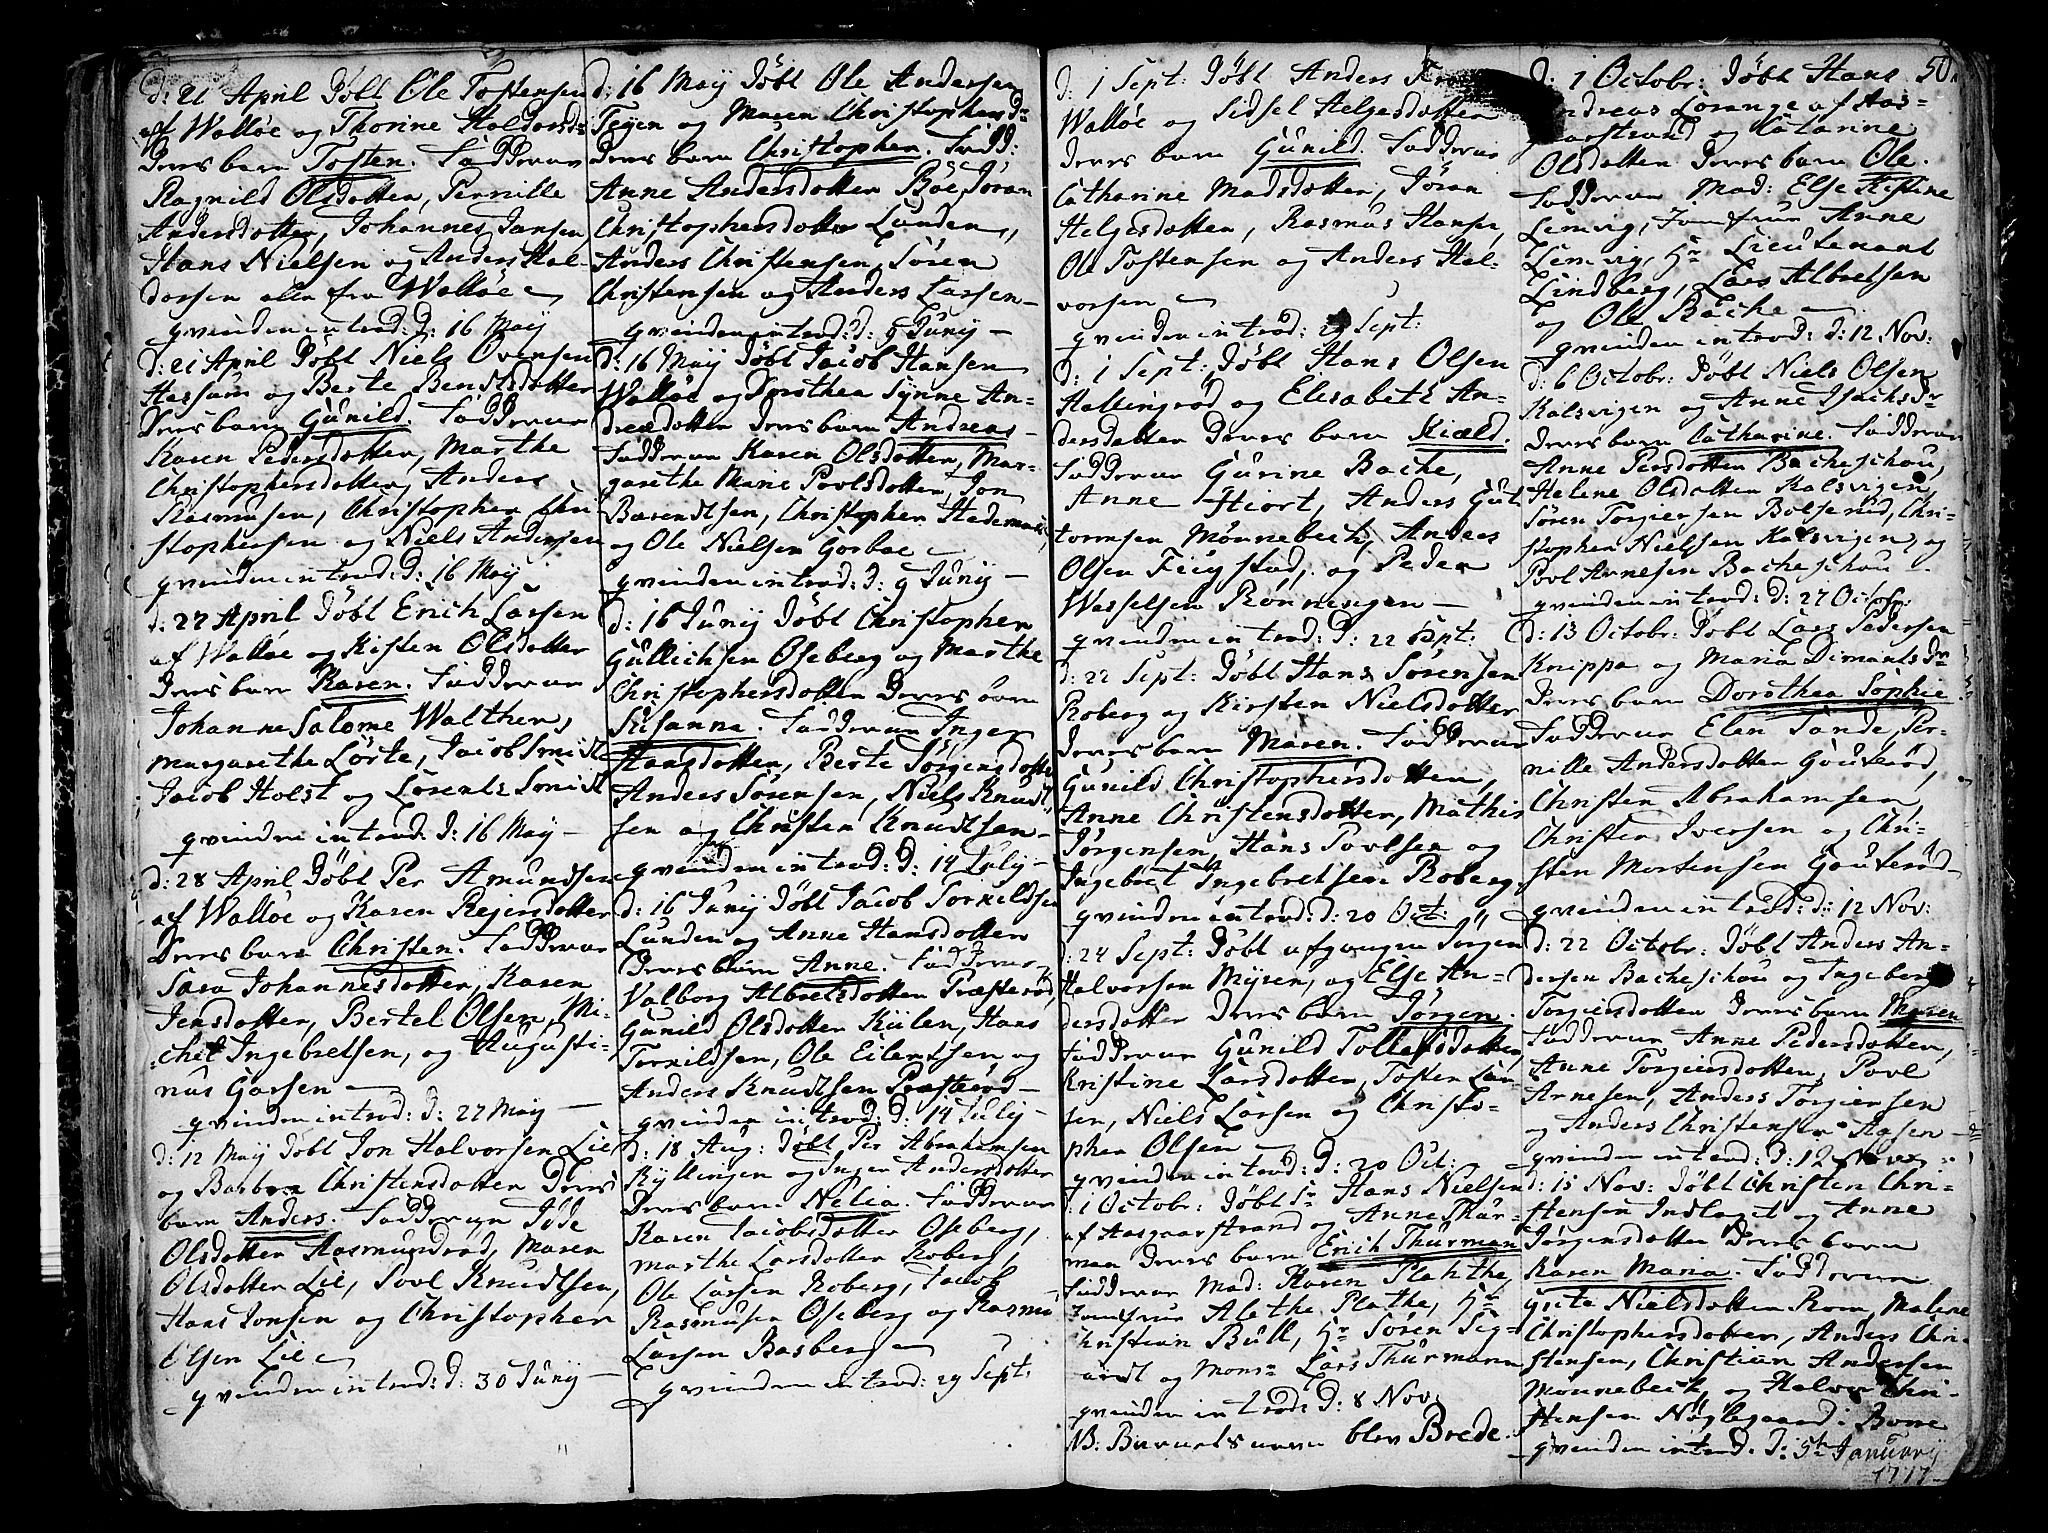 d: 21 April Döbt Ole Tostensen
af Walløe og Thorine Haldorsd=
Deres barn Tosten. Fadderne
Ragnild Olsdotter, Pernille
Andersdotter, Johannes Jansen,
Hans Nielsen og Anders Hal=
dorsen alle fra Walløe
qvinden introd: d: 16 May
d: 21 April Döbt Niels Ovensen
Hassum og Berte Bendtsdotter
Deres barn Gunild. Fadderne
Karen Pedersdotter, Marthe
Christophersdotter, Anders
Rasmusen, Christopher Chri
stophersen og Niels Andersen
qvinden introd: d: 16 May
d: 27 April Döbt Erich Larsen
af Walløe og Kisten Olsdotter
Deres barn Karen. Fadderne
Johanne Salome Walther,
Margarethe Lörte, Jacob Smidt
Jacob Holst og Lorentz Smidt
qvinden introd: d: 16 May —
d: 28 April Döbt Per Amundsen
af Walløe og Karen Rejersdotter
Deres barn Christen. Fadderne
Sara Johannesdotter, Karen
Jensdotter, Bertel Olsen, Mi=
chel Ingebretsen, og Augusti=
nus Garsen
qvinden introd: d: 27 May —
d: 12 May Döbt Jon Halvorsen Lie
og Barbra Christensdotter Deres
barn Anders. Fadderne Jöde
Olsdotter Aasmundröd, Maren
Olsdotter Lie, Povl Knudtsen,
Hans Jonsen og Christopher
Olsen Lie
qvinden introd: d: 30 Juny —
d: 16 May Döbt Ole Andersen
Tejen og Maren Christophersd=
Deres barn Christopher. Fadd:
Anne Andersdotter Böe, Joran
Christophersdotter Lunden,
Anders Christensen, Sören
Christensen og Anders Larsen —
qvinden introd: d: 9 Juny —
d: 16 May Döbt Jacob Hansen
Walløe og Dorthea Synne An=
dreædotter Deres barn Andreas —
Fadderne Karen Olsdotter, Mar=
garethe Marie Povlsdotter, Jon
Barendtsen, Christopher Hedemark,
og Ole Nielsen Gorboe
qvinden introd: d: 9 Juny —
d: 16 Juny Döbt Christopher
Gullichsen Oseberg og Marthe
Christophersdotter Deres barn
Susanna. Fadderne Inger
Hansdotter, Berte Jörgensdotter
Anders Sörensen, Niels Knudt
sen og Christen Knudtsen —
qvinden introd: d: 14 July —
d: 16 Juny Döbt Jacob Torkildsen
Lunden og Anne Hansdotter
Deres barn Anne. Fadderne
Valborg Albretsdotter Præsteröd,
Gunild Olsdotter Kulen, Hans
Torkildsen, Ole Eilertsen, og
Anders Knudtsen Præsteröd —
qvinden introd: d: 14 July —
d: 18 Aug: Döbt Per Abrahamsen
Kyllingen og Inger Andersdotter
Deres barn Nelia. Fadderne
Karen Jacobsdotter Oseberg,
Marthe Larsdotter Roberg,
Ole Larsen Roberg, Jacob
Rasmusen Oseberg og Rasmus
Larsen Basberg
qvinden introd: 29 Sept:
d: 1 Sept: Döbt Anders
Walløe og Sidsel Helgesdotter
Deres barn Gunild. Fadderne
Catharine Madsdotter, Jöran
Helgesdotter, Rasmus Hansen,
Ole Tostensen og Anders Hal=
vorsen
qvinden introd: 29 Sept:
d: 1 Sept: Döbt Hans Olsen
Hallingröd og Elisabeth An=
dersdotter Deres barn Kield.
Fadderne Gurine Bache,
Anne Hiort, Anders Gut
tormsen Mönnebech, Anders
Olsen Feigstad, og Peder
Wesselsen Rönningen —
qvinden introd: d: 22 Sept:
d: 22 Sept: Döbt Hans Sörensen
Roberg og Kirsten Nielsdotter
Deres barn Maren. Fadderne
Gunild Christophersdotter,
Anne Christensdotter, Mathis
Jörgensen, Hans Povlsen og
Ingebret Ingebretsen Roberg
qvinden introd: d: 20 Oct:
d: 24 Sept: Döbt afgangen Jörgen
Halvorsen Myren, og Else An=
dersdotter Deres barn Jörgen.
Fadderne Gunild Tollefsdotter,
Kristine Larsdotter, Tosten Lar=
sen, Niels Larsen og Christo=
pher Olsen
qvinden introd: d: 20 Oct:
d: 1 Octobr: Döbt Sr Hans Nielsen
af Aasgaarstrand og Anne Thur=
man Deres barn Erich Thurman
Fadderne Mad: Karen Plahthe,
Jomfrue Alethe Plathe, Hr
Christian Bull, Hr Sören Sig=
vardt og Mons= Lars Thurmann
qvinden introd: d: 8 Nov:
NB: Barnets navn blev Brede.
50.
d: 1 Octobr: Döbt Hans
Andreas Lorange af Aas=
gaarstrand og Catarine
Olsdotter Deres barn Ole.
Fadderne Mad: Else Kistine
Lemvig, Jomfrue Anne
Lemvig, Hr Lieutenant
Lindberg, Lars Albretsen
og Ole Bache
qvinden introd: d: 12 Nov:
d: 6 Octobr: Döbt Niels Olsen
Kalsvigen og Anne Isachsdr
Deres barn Catharine. Fadderne
Anne Persdotter Bacheschou,
Helene Olsdotter Kalsvigen,
Sören Torgiersen Bolserud, Chri=
stopher Nielsen Kalsvigen, og
Povl Arnesen Bacheschou
qvinden introd: d: 27 Octobr:
d: 13 Octobr: Döbt Lars Pedersen
Knippa og Maria Dimantsdr
Deres barn Dorothea Sophie
Fadderne Elen Sande, Per=
nille Andersdotter Gouteröd,
Christen Abrahamsen,
Christen Iversen og Chri=
sten Mortensen Gouteröd —
qvinden introd: d: 12 Nov:
d: 22 Octobr: Döbt Anders An=
dersen Bacheschou og Ingeborg
Torgiersdotter Deres barn Maren
Fadderne Anne Pedersdotter,
Anne Torgiersdotter, Povl
Arnesen, Anders Torgiersen
og Anders Christensen Aasen —
qvinden introd: d: 12 Nov:
d: 15 Nov: Döbt Christen Chri=
stensen Indlaget og Anne
Jörgensdotter Deres barn
Karen Maria. Fadderne
Grete Nielsdotter Rom, Malene
Christophersdotter, Anders Chri=
stensen, Christian Andersen
Mönnebech, og Halvor Chri=
stensen Nöglegaard i Borre
qvinden introd. d: 5te January
1777